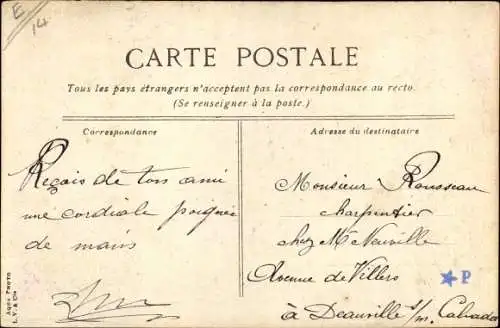 E
14
CARTE POSTALE
Tous les pays étrangers n'acceptent pas la correspondance au recto.
(Se renseigner à la poste.)
Correspondance
Adresse du destinataire
Reçois de ton ami
une cordiale poignée
de mains
Monsieur Rousseau
charpentier
chez Mr Neuville
Avenue de Villers
à Deauville s/m. Calvados
P
Aqua Photo
L.V. & Cie